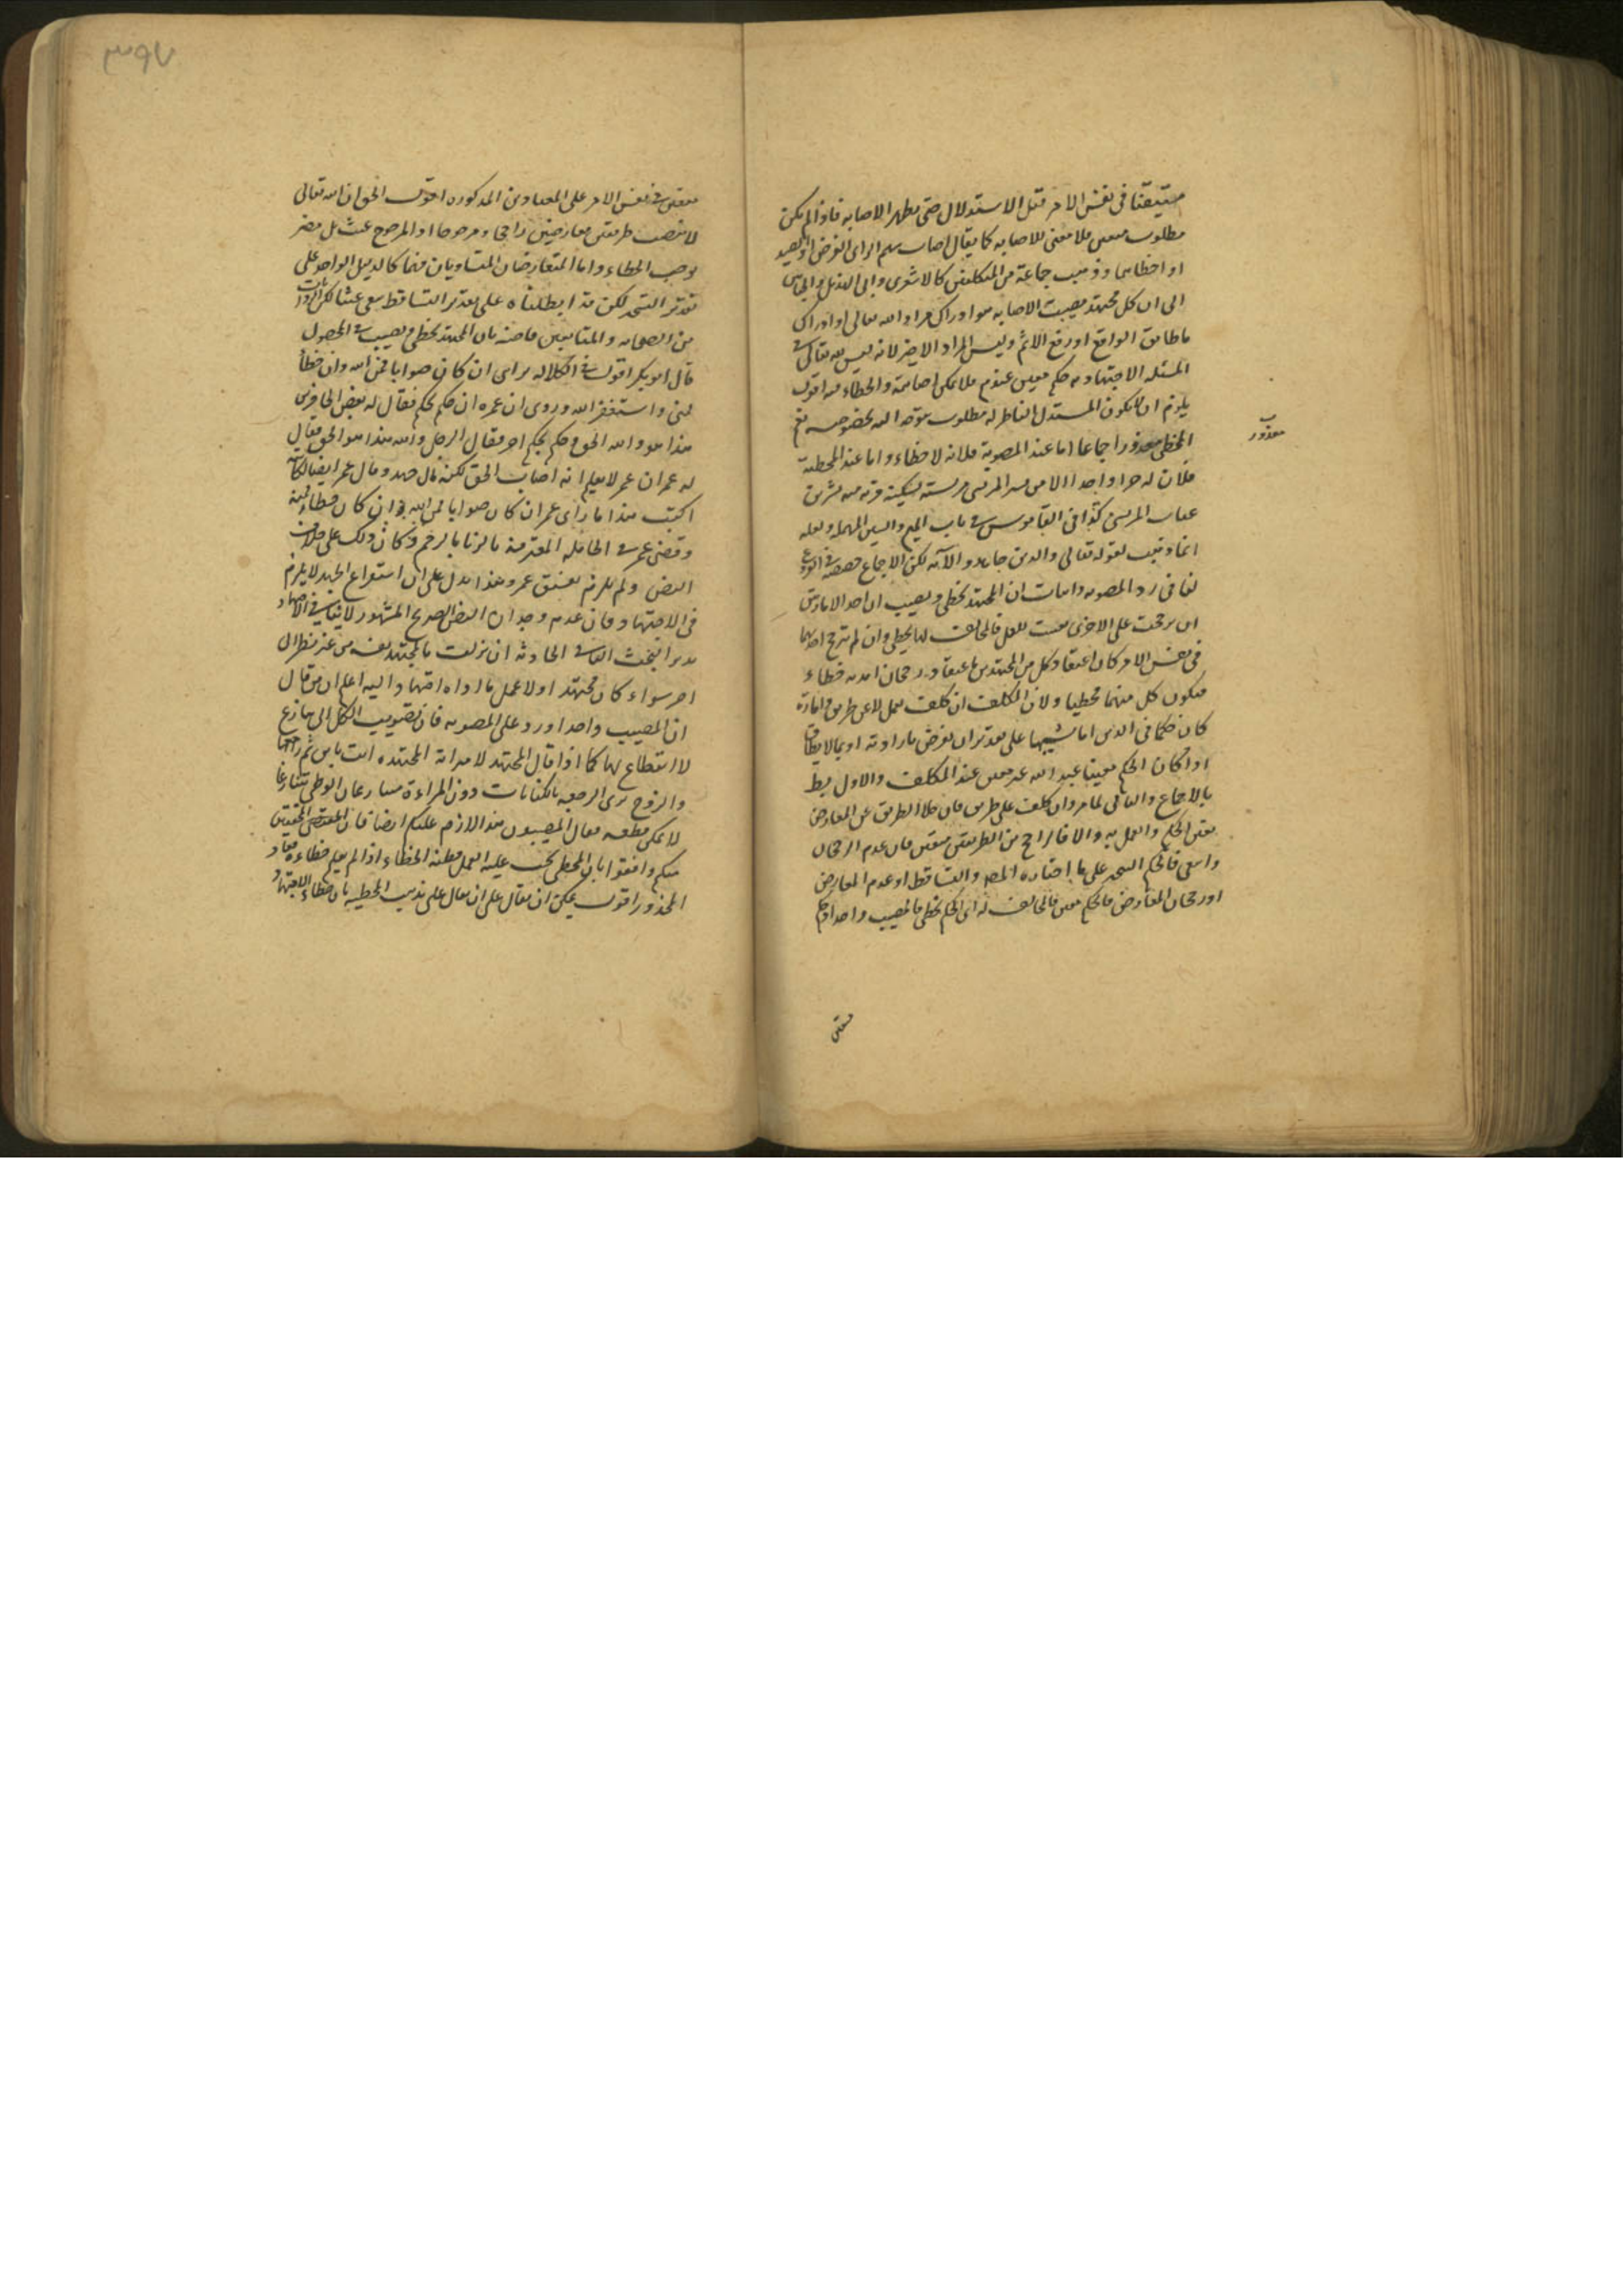 متيقنا في نفس الامر قبل الاستدلال حتى يظهر الاصابه فاذا لم يكن
مطلوب معين فلا معنى للاصابه كما يقال اصاب سهم الرامي الغرض او الصيد
او اخطاهما وذهب جماعة من المتكلمين كالاشعري وابي الهذيل والجبائي
الى ان كل مجتهد مصيب الاصابه هو ادراك مراد الله تعالى او ادراك
ما طابق الواقع او رفع الاثم وليس المراد الاخير لانه ليس لله تعالى في
المسئله الاجتهاديه حكم معين عندهم فلا يمكن اصابته والخطاء فيه اقول
يلزم ان لا يكون المستدل الناظر له مطلوب يتوجه اليه بخصوصه نعم
المخطي معذور اجماعا اما عند المصوبة فلانه لا خطاء واما عند المخطئة
فلان له اجرا واحدا الا من بشر المريسي مريسة كسكينة قرية منه بشر بن
غياث المريسي كذا في القاموس في باب الميم والسين المهمله ولعله
انما ذهب لقوله تعالى والذين جاهدوا الآيه لكن الاجماع خصصه في الفروع
لنا في رد المصوبه واثبات ان المجتهد يخطي ويصيب ان احد الامارتين
ان رجحت على الاخرى تعينت للعمل فالمخالف لها يخطي وان لم ترجح احديهما
في نفس الامر كان اعتقاد كل من المجتهدين باعتقاد رجحان امارته خطاء
فيكون كل منهما مخطيا ولان المكلف ان كلف بعمل لا عن طريق وامارة
كان حكما في الدين اما تشهيا على تقدير ان يفرض بارادته او بما لا يطاق
اذا كان الحكم معينا عند الله غير معين عند المكلف والاول بط
بالاجماع والثاني لما مر وان كلف على طريق فان خلا الطريق عن المعارض
تعين الحكم والعمل به والا فالراجح من الطريقين متعين فان عدم الرجحان
وا فالحكم التخير على ما اختاره المص والتساقط او عدم المعارض
او رجحان المعارض فالحكم معين فالمخالف له اي الحكم مخطي فالمصيب واحد اذ
معذور
متعين
٣٩٧
متعين في نفس الامر على المعنيين المذكوره اقول الحق ان الله تعالى
لا ينصب طريقين معارضين راجحا ومرجوحا اذ المرجوح عبث بل مضر
يوجب الخطاء واما المتعارضان المتساويان فهما كالدليل الواحد على
تقدير التخير لكن قد ابطلناه على تقدير التساقط يبقى عبثا لكن
من الصحابه والتابعين بان المجتهد يخطي ويصيب في المحصول
قال ابو بكر اقول في الكلاله براي ان كان صوابا فمن الله وان خطأ
فمني واستغفر الله وروى ان عمر ان حكم بحكم فقال له بعض الحاضرين
هذا هو والله الحق وحكم بحكم اخر فقال الرجل والله هذا هو الحق فقال
له عمر ان عمر لا يعلم انه اصاب الحق لكنه بذل جهده وقال عمر ايضا لكاتبه
اكتب هذا ما رأى عمر ان كان صوابا فمن الله وان كان خطاء فمنه
وقضى عمر في الحامله المقترفة بالزنا بالرجم وكان ذلك على خلاف
النص ولم يلزم بفسق عمر وهذا يدل على ان استفراغ الجهد لا يلزم
في الاجتهاد فان عدم وجدان النص الصريح المشهور لا ينافي الاجتهاد
الحادثه ان نزلت بالمجتهد نفسه من غير نظر الى
اخر سواء كان مجتهدا اولا عمل بما اداه اجتهاده اليه اعلم ان من قال
ان المصيب واحد اورد على المصوبه فان تصويب الكل الى منازع
لا انقطاع لها كما اذا قال المجتهد لامراته المجتهده انت باين ثم راجعها
والزوج يرى الرجعه بالكنايات دون المراءة فيتنازعان الوطي تنازعا
لا يمكن قطعه فقال المصيبون هذا لازم عليكم ايضا فان المحققين
منكم وافقوا بان المخطي يجب عليه العمل بظنه الخطاء اذا لم يعلم خطاءه
المحذور اقول يمكن ان يقال على ان يقال على مذهب المخطئه بان خطاء الاجتهاد